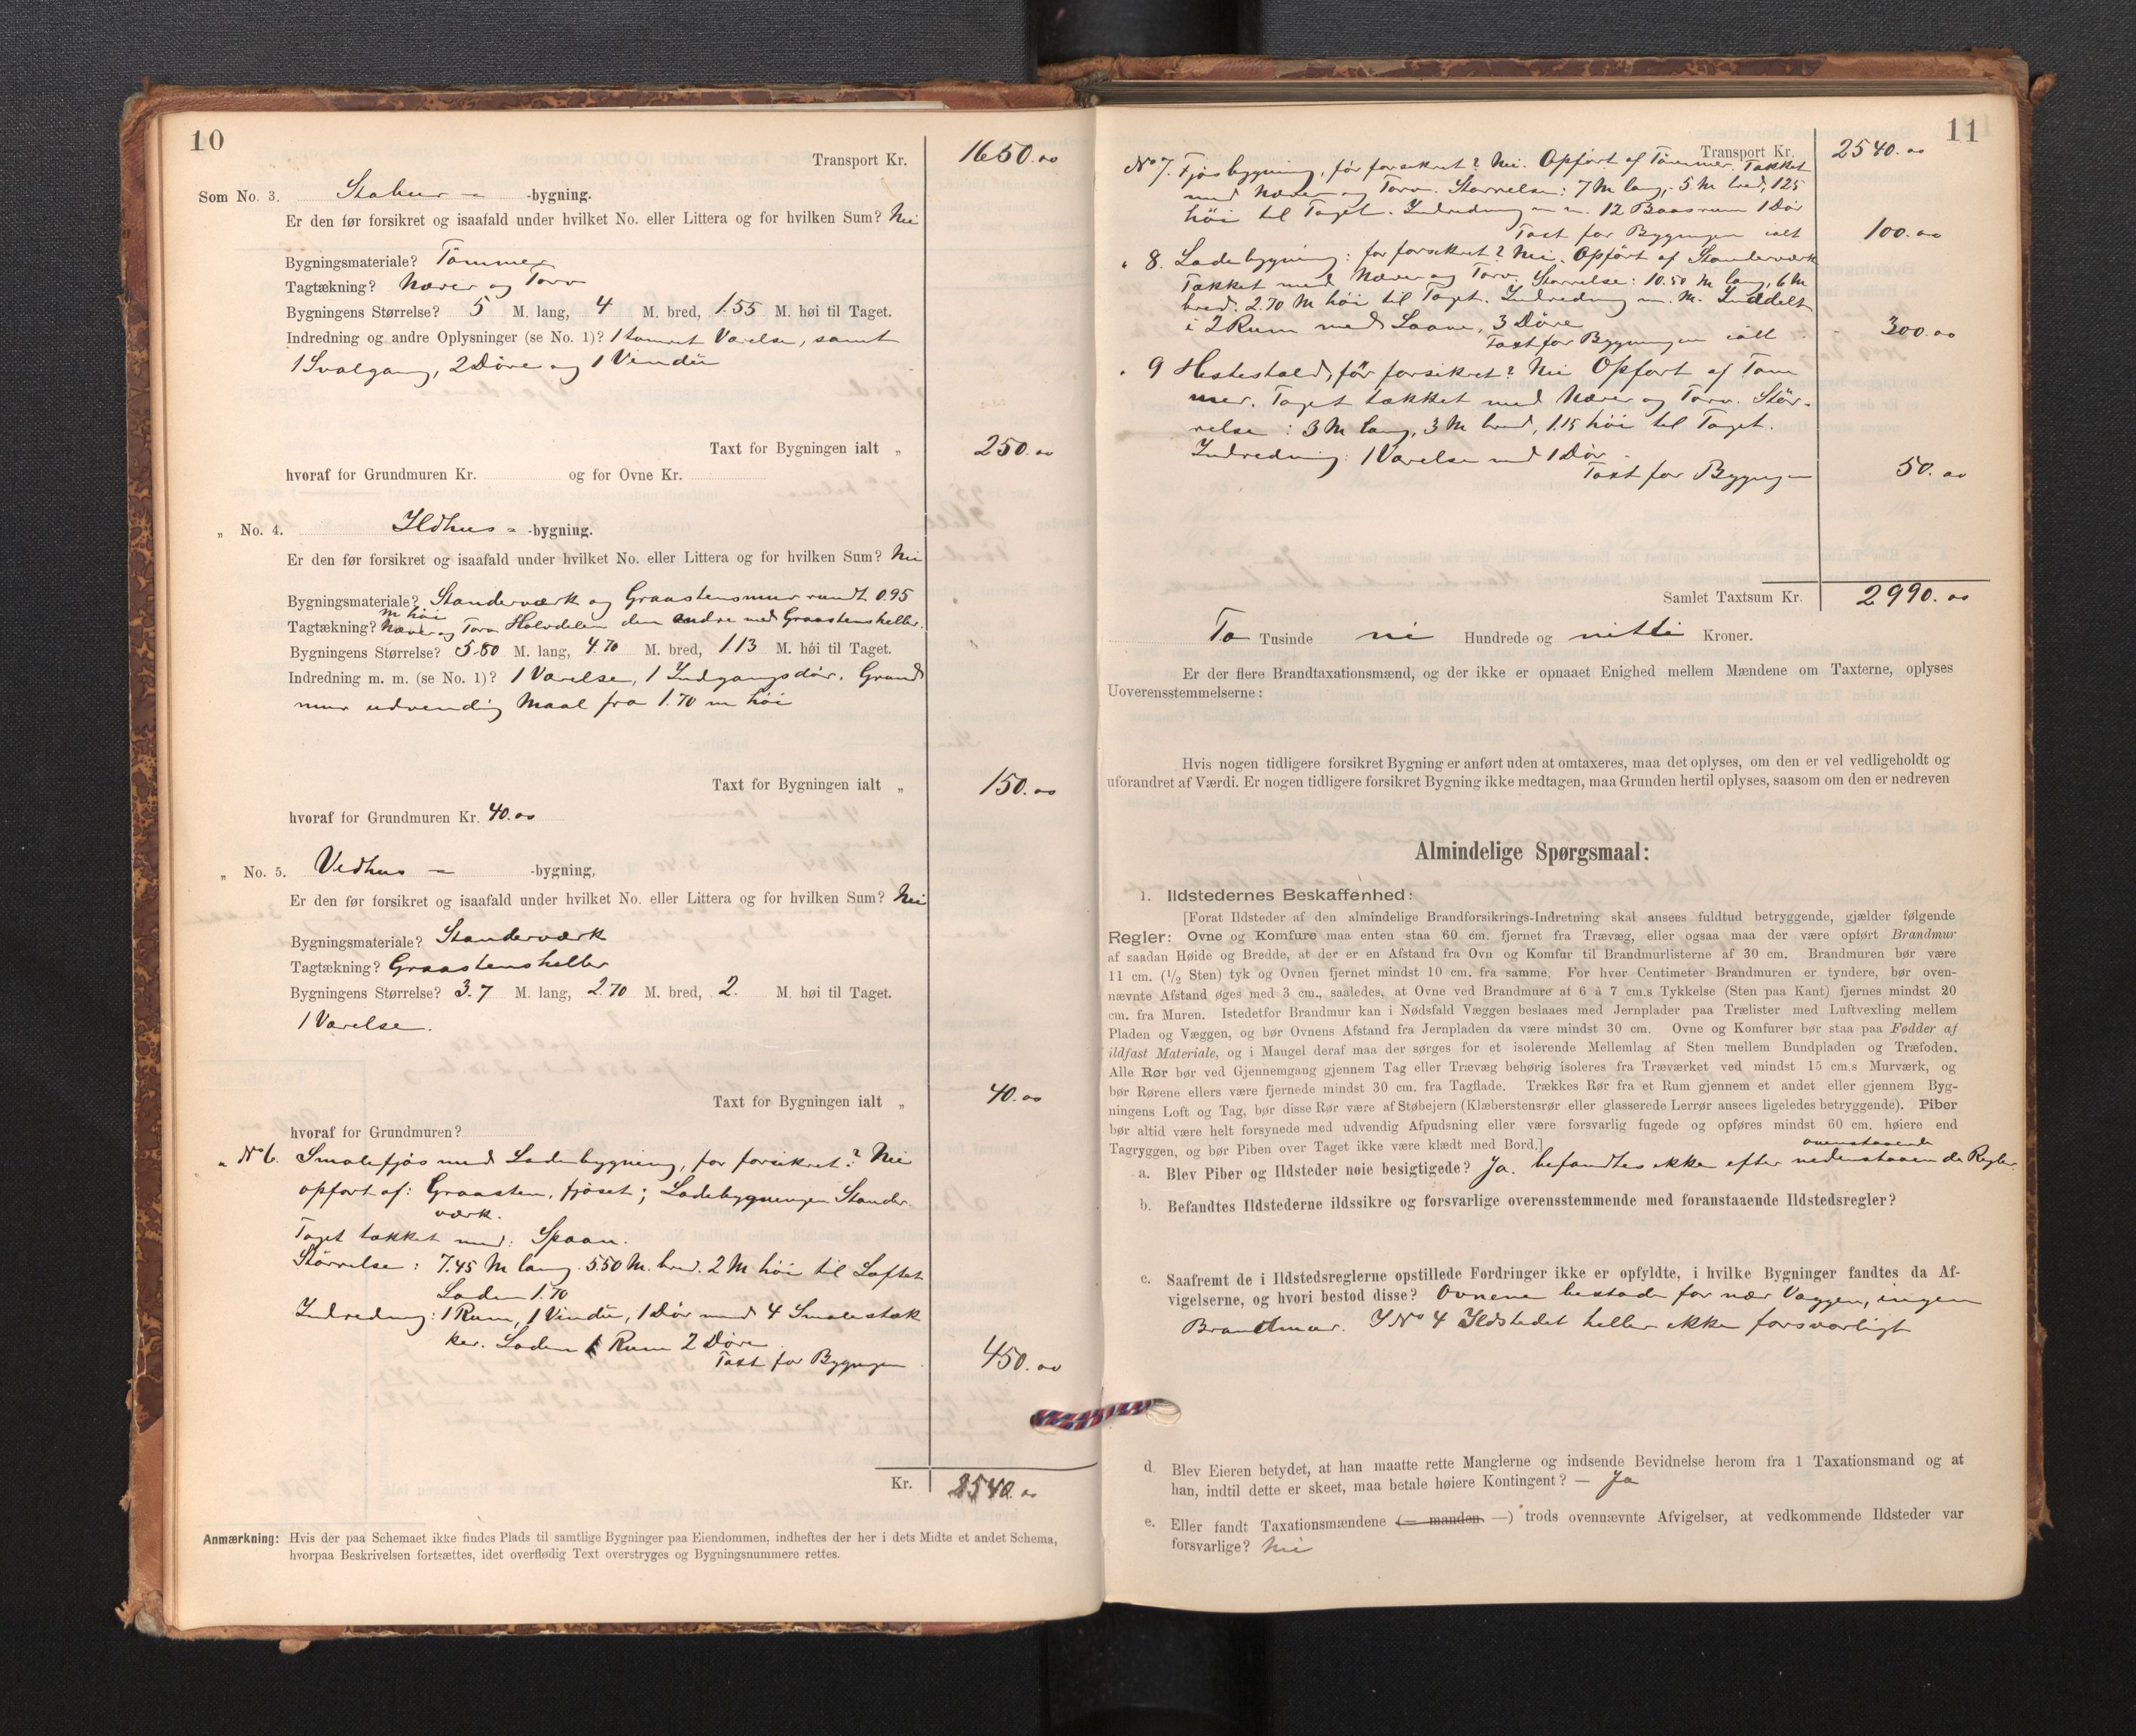 10
Transport Kr. 1650.00
Som No. 3. Stabur - -bygning.
Er den før forsikret og isaafald under hvilket No. eller Littera og for hvilken Sum? Nei
Bygningsmateriale? Tømmer
Tagtækning? Næver og Torv
Bygningens Størrelse? 5 M. lang, 4 M. bred, 1.55 M. høi til Taget.
Indredning og andre Oplysninger (se No. 1)? 1 tømret Værelse, samt
1 Svalgang, 2 Døre og 1 Vindu
Taxt for Bygningen ialt „ 250.00
hvoraf for Grundmuren Kr. og for Ovne Kr.
„ No. 4. Ildhus - -bygning.
Er den før forsikret og isaafald under hvilket No. eller Littera og for hvilken Sum? Nei
Bygningsmateriale? Standerværk og Graastensmur rundt 0.95
m høi
Tagtækning? Næver og Torv Halvdelen den andre med Graastensheller.
Bygningens Størrelse? 5.80 M. lang, 4.70 M. bred, 1.13 M. høi til Taget.
Indredning m. m. (se No. 1)? 1 Værelse, 1 Indgangsdør. Grund
mur udvendig Maal fra 1.70 m høi
Taxt for Bygningen ialt „ 150.00
hvoraf for Grundmuren Kr. 40.00
„ No. 5. Vedhus - -bygning,
Er den før forsikret og isaafald under hvilket No. eller Littera og for hvilken Sum? Nei
Bygningsmateriale? Standerværk
Tagtækning? Graastensheller
Bygningens Størrelse? 3.7 M. lang, 2.70 M. bred, 2. M. høi til Taget.
1 Værelse.
Taxt for Bygningen ialt „ 40.00
hvoraf for Grundmuren?
„ No 6. Smalefjøs med Ladebygning, før forsikret? Nei
opført af: Graasten, fjøset; Ladebygningen Stander-
værk.
Taget tækket med: Spaan.
Størrelse: 7.45 M lang. 5.50 M. bred. 2 M høi til Loftet
Laden 1.70
Indredning: 1 Rum, 1 Vindu, 1 Dør med 4 Smalestæk
ker. Laden 1 Rum 2 Døre
Taxt for Bygningen 450.00
Kr. 2540.00
Anmærkning: Hvis der paa Schemaet ikke findes Plads til samtlige Bygninger paa Eiendommen, indheftes der her i dets Midte et andet Schema,
hvorpaa Beskrivelsen fortsættes, idet overflødig Text overstryges og Bygningsnummere rettes.
11
Transport Kr. 2540.00
No 7. Fjøsbygning, før forsikret? Nei. Opført af Tømmer. Tækket
med Næver og Torv. Størrelse: 7 M lang, 5 M bred, 1.25
høi til Taget. Indredning m m. 12 Baasrum 1 Dør
Taxt for Bygningen ialt 100.00
„ 8. Ladebygning: før forsikret? Nei. Opført af Standerværk
Tækket med Næver og Torv. Størrelse: 10.50 M lang, 6 M
bred. 2.70 M høi til Taget. Indredning m. M. Inddelt
i 2 Rum med Laave, 3 Døre
Taxt for Bygningen ialt 300.00
„ 9 Hestestald, før forsikret? Nei Opført af Tøm
mer. Taget tækket med Næver og Torv. Stør-
relse: 3 M lang, 3 M bred, 1.15 høi til Taget.
Indredning: 1 Værelse med 1 Dør.
Taxt for Bygningen 50.00
Samlet Taxtsum Kr. 2990.00
To Tusinde ni Hundrede og nitti Kroner.
Er der flere Brandtaxationsmænd, og der ikke er opnaaet Enighed mellem Mændene om Taxterne, oplyses
Uoverensstemmelserne:
Hvis nogen tidligere forsikret Bygning er anført uden at omtaxeres, maa det oplyses, om den er vel vedligeholdt og
uforandret af Værdi. Er nogen tidligere forsikret Bygning ikke medtagen, maa Grunden hertil oplyses, saasom om den er nedreven
Almindelige Spørgsmaal:
1. Ildstedernes Beskaffenhed:
[Forat Ildsteder af den almindelige Brandforsikrings-Indretning skal ansees fuldtud betryggende, gjælder følgende
Regler: Ovne og Komfure maa enten staa 60 cm. fjernet fra Trævæg, eller ogsaa maa der være opført Brandmur
af saadan Høide og Bredde, at der er en Afstand fra Ovn og Komfur til Brandmurlisterne af 30 cm. Brandmuren bør være
11 cm. (1/2 Sten) tyk og Ovnen fjernet mindst 10 cm. fra samme. For hver Centimeter Brandmuren er tyndere, bør oven-
nævnte Afstand øges med 3 cm., saaledes, at Ovne ved Brandmure af 6 à 7 cm.s Tykkelse (Sten paa Kant) fjernes mindst 20
cm. fra Muren. Istedetfor Brandmur kan i Nødsfald Væggen beslaaes med Jernplader paa Trælister med Luftvexling mellem
Pladen og Væggen, og bør Ovnens Afstand fra Jernpladen da være mindst 30 cm. Ovne og Komfurer bør staa paa Fødder af
ildfast Materiale, og i Mangel deraf maa der sørges for et isolerende Mellemlag af Sten mellem Bundpladen og Træfoden.
Alle Rør bør ved Gjennemgang gjennem Tag eller Trævæg behørig isoleres fra Træværket ved mindst 15 cm.s Murværk, og
bør Rørene ellers være fjernede mindst 30 cm. fra Tagflade. Trækkes Rør fra et Rum gjennem et andet eller gjennem Byg-
ningens Loft og Tag, bør disse Rør være af Støbejern (Klæberstensrør eller glasserede Lerrør ansees ligeledes betryggende). Piber
bør altid være helt forsynede med udvendig Afpudsning eller være forsvarlig fugede og opføres mindst 60 cm. høiere end
Tagryggen, og bør Piben over Taget ikke være klædt med Bord.]
ovenstaaende
a. Blev Piber og Ildsteder nøie besigtigede? Ja. befandtes ikke efter nedenstaaende Regler.
b. Befandtes Ildstederne ildssikre og forsvarlige overensstemmende med foranstaaende Ildstedsregler?
c. Saafremt de i Ildstedsreglerne opstillede Fordringer ikke er opfyldte, i hvilke Bygninger fandtes da Af-
vigelserne, og hvori bestod disse? Ovnene bestode for nær Væggen, ingen
Brandmur. I No 4 Ildstedet heller ikke forsvarligt
d. Blev Eieren betydet, at han maatte rette Manglerne og indsende Bevidnelse herom fra 1 Taxationsmand og at
han, indtil dette er skeet, maa betale høiere Kontingent? — Ja
e. Eller fandt Taxationsmændene (— manden —) trods ovennævnte Afvigelser, at vedkommende Ildsteder var
forsvarlige? Nei